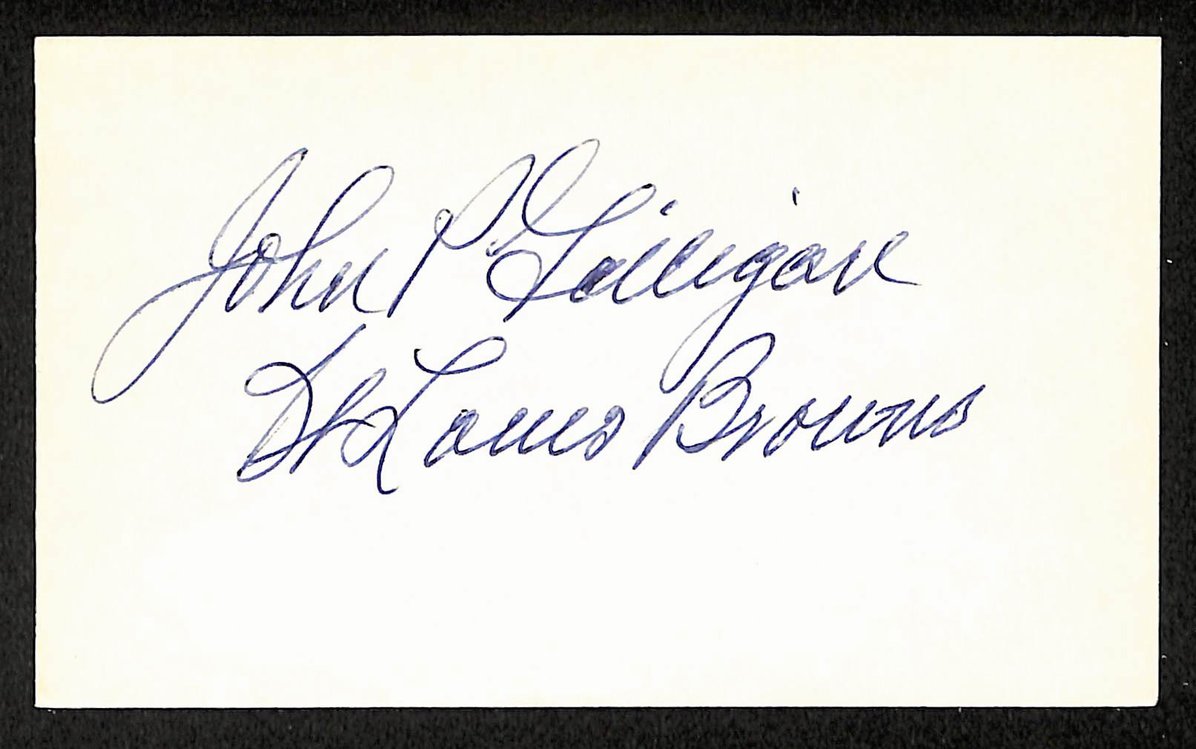 John P Gilligan
St Louis Browns